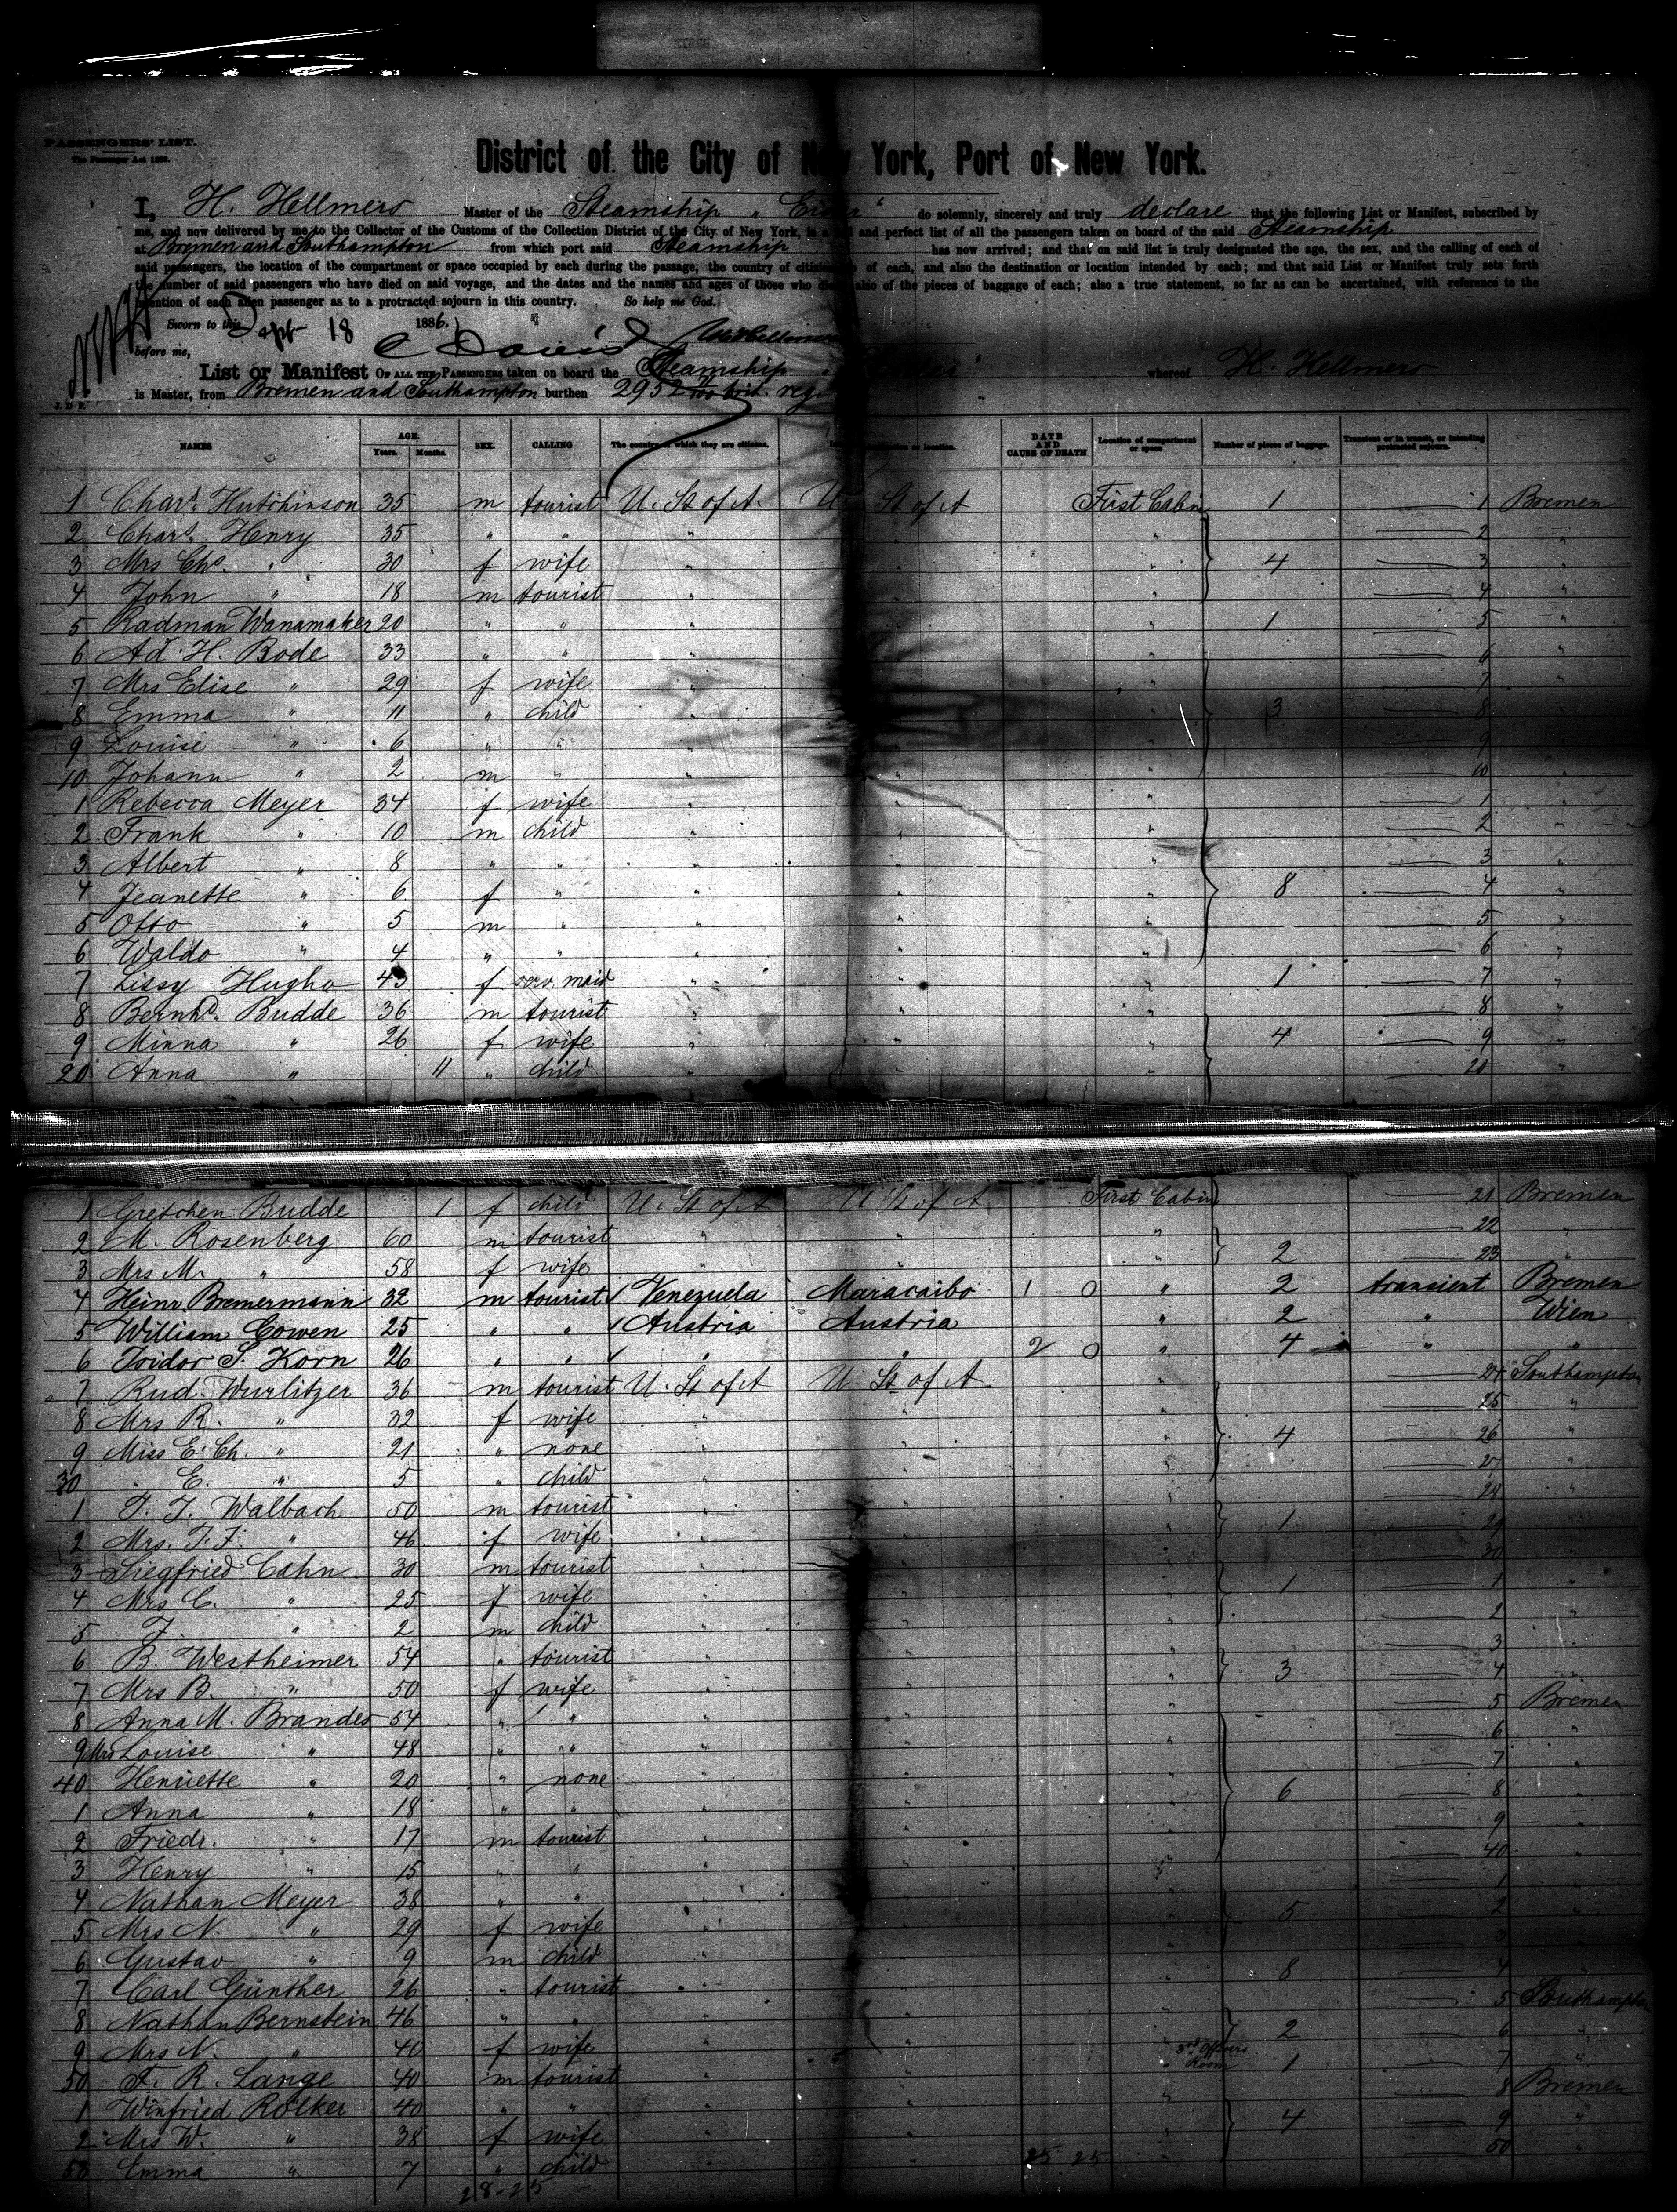 PASSENGERS' LIST.
The Passenger Act 1882.
District of the City of New York, Port of New York.
I, H. Hellmers Master of the Steamship " Eider " do solemnly, sincerely and truly declare that the following List or Manifest, subscribed by
me, and now delivered by me to the Collector of the Customs of the Collection District of the City of New York, is a full and perfect list of all the passengers taken on board of the said Steamship
at Bremen and Southampton from which port said Steamship has now arrived; and that on said list is truly designated the age, the sex, and the calling of each of
said passengers, the location of the compartment or space occupied by each during the passage, the country of citizenship of each, and also the destination or location intended by each; and that said List or Manifest truly sets forth
the number of said passengers who have died on said voyage, and the dates and the names and ages of those who died; also of the pieces of baggage of each; also a true statement, so far as can be ascertained, with reference to the
intention of each alien passenger as to a protracted sojourn in this country. So help me God.
Sworn to this Sept 18 1886.
before me, C Davis
List or Manifest OF ALL THE PASSENGERS taken on board the Steamship " Eider " whereof H. Hellmers
is Master, from Bremen and Southampton burthen 2952
NAMES AGE. Years. Months. SEX. CALLING The country of which they are citizens. destination or location. DATE AND CAUSE OF DEATH Location of compartment or space Number of pieces of baggage. Transient or in transit, or intending protracted sojourn.
1 Chas. Hutchinson 35 m tourist U. St of A. U. St of A First Cabin 1 — 1 Bremen
2 Chas. Henry 35 " " " " — 2 "
3 Mrs Chs. " 30 f wife " " 4 — 3 "
4 John " 18 m tourist " " — 4 "
5 Radman Wanamaker 20 " " " " 1 — 5 "
6 Ad. H. Bode 33 " " " " — 6 "
7 Mrs Elise " 29 f wife " " — 7 "
8 Emma " 11 " child " " 3 — 8 "
9 Louise " 6 " " " " — 9 "
10 Johann " 2 m " " " " — 10 "
1 Rebecca Meyer 34 f wife " " " — 1 "
2 Frank " 10 m child " " " — 2 "
3 Albert " 8 " " " " " — 3 "
4 Jeanette " 6 f " " " " 8 — 4 "
5 Otto " 5 m " " " " — 5 "
6 Waldo " 4 " " " " " — 6 "
7 Lissy Hugho 43 f serv. maid " " " 1 — 7 "
8 Bernhd. Budde 36 m tourist " " " — 8 "
9 Minna " 26 f wife " " " 4 — 9 "
20 Anna " 11 " child " " " — 20 "
1 Gretchen Budde 1 f child U. St of A U St of A First Cabin 21 Bremen
2 M. Rosenberg 60 m tourist " " " — 22 "
3 Mrs M. " 58 f wife " " " 2 — 23 "
4 Heinr Bremermann 32 m tourist Venezuela Maracaibo 1 0 " 2 transient Bremen
5 William Cowen 25 " " Austria Austria " 2 " Wien
6 Isidor S. Korn 26 " " " " 2 0 " 4 " "
7 Rud. Wurlitzer 36 m tourist U. St of A U. St of A " — 24 Southampton
8 Mrs R. " 32 f wife " " " — 25 "
9 Miss E. Ch. " 21 " none " " " 4 — 26 "
30 E. " 5 " child " " " — 27 "
1 T. F. Walbach 50 m tourist " " " — 28 "
2 Mrs. T. F. " 46 f wife " " " 1 — 29 "
3 Siegfried Cahn 30 m tourist " " " — 30 "
4 Mrs C. " 25 f wife " " " 1 — 1 "
5 F. " 2 m child " " " — 2 "
6 B. Westheimer 54 " tourist " " " — 3 "
7 Mrs B. " 50 f wife " " " 3 — 4 "
8 Anna M. Brandes 54 " " " " " — 5 Bremen
9 Mrs Louise " 48 " " " " " — 6 "
40 Henriette " 20 " none " " " — 7 "
1 Anna " 18 " " " " " 6 — 8 "
2 Friedr. " 17 m tourist " " " — 9 "
3 Henry " 15 " " " " " — 40 "
4 Nathan Meyer 38 " " " " " — 1 "
5 Mrs N. " 29 f wife " " " 5 — 2 "
6 Gustav " 9 m child " " " — 3 "
7 Carl Günther 26 " tourist " " " 8 — 4 "
8 Nathan Bernstein 46 " " " " " — 5 Southampton
9 Mrs N. " 40 f wife " " " 2 — 6 "
50 F. R. Lange 40 m tourist " " 3rd Officers Room 1 — 7 "
1 Winfried Rölker 40 " " " " " — 8 Bremen
2 Mrs W. " 38 f wife " " " 4 — 9 "
53 Emma " 7 " child " " " — 50 "
28-25 25 25